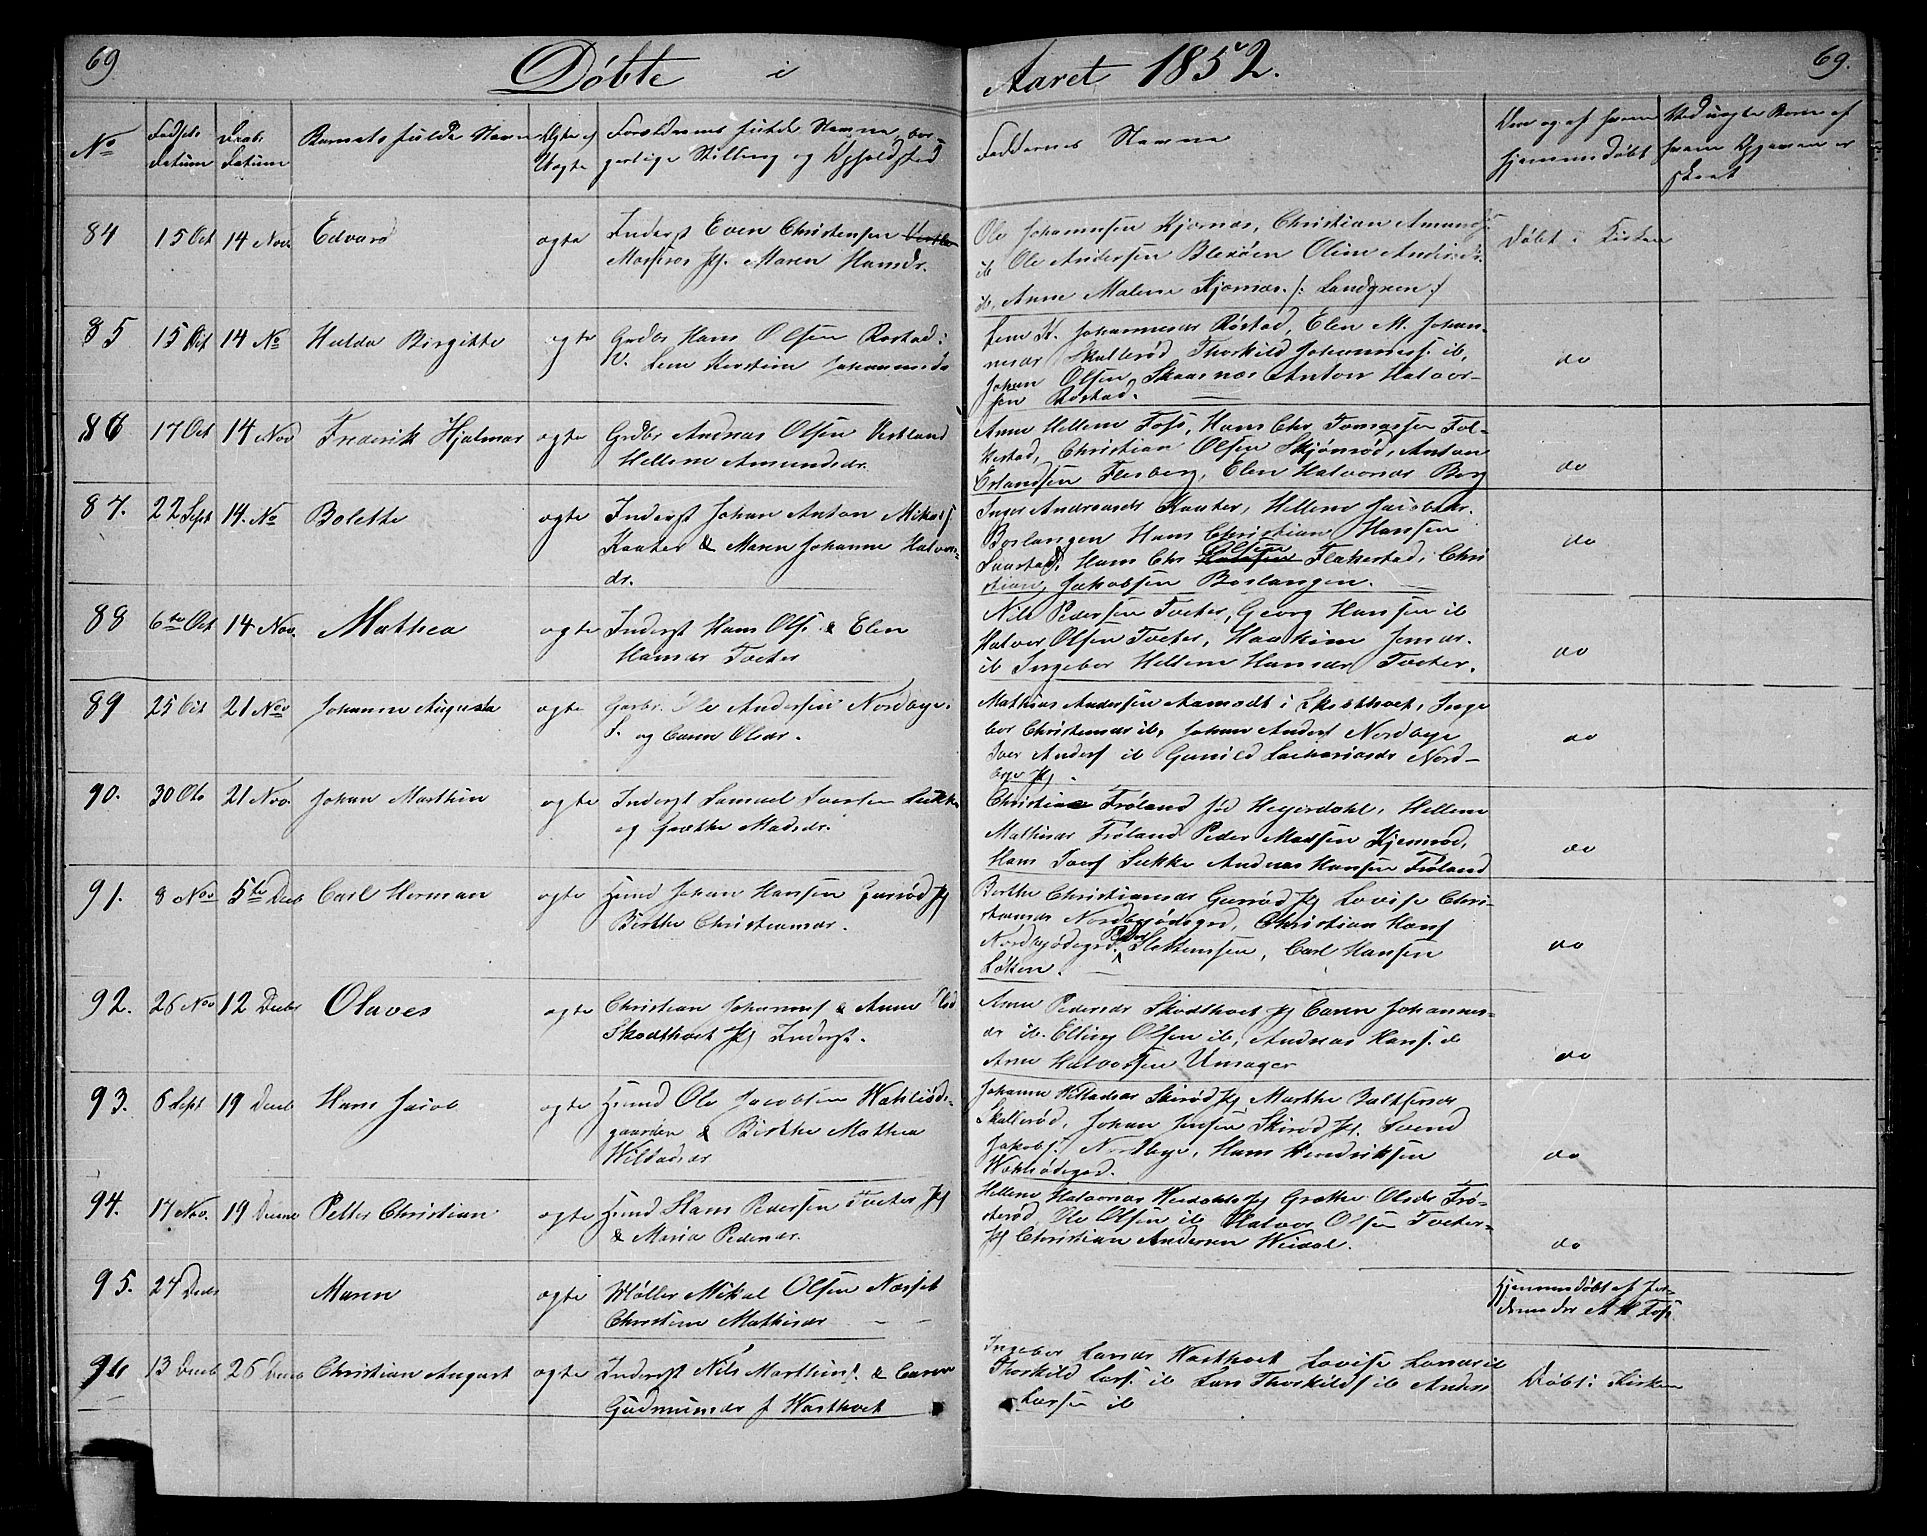 69
Døbte i
Aaret 1852.
69.
No
Fødsels Datum
Daabs Datum
Barnets fulde Navn
Ægte el Uægte
Forældrenes fulde Navne, borgerlige Stilling og Opholdsted
Faddernes Navne
Hvor og af hvem hjemmedøbt
Ved uægte Børn af hvem Opgaven er skeet
84
15 Oct
14 Nov
Edvard
ægte
Inderst Even Christensen
Mosseros Pl. Maren Hansdr.
Ole Johannesen Kjærnæs, Christian Amunds.
ib Ole Andersen Blexöen Oline Andersdr.
ib, Anne Malene Kjærnæs /: Landgren /
Døbt i Kirken
85
15 Oct
14 No
Hulda Birgitte
ægte
Grdbr Hans Olsen Röstad i
V. Lene Kerstine Johannesdr
Lene K. Johannesdr Röstad, Elen M. Johan-
nesdr Skullerød Thorkild Johanness. ib,
Johan Olsen Skaarnæs Anton Halvor-
sen Röstad.
do
86
17 Oct
14 Nov
Frederik Hjalmar
ægte
Grdbr Andreas Olsen Vestland
Hellene Amundsdr.
Anne Hellene Foss, Hans Chr Tomassen Fol-
kestad, Christian Olsen Skjønrød, Anton
Erlandsen Flesberg, Elen Halvorsdr Berg
do
87.
22 Sept
14. No
Bolette
ægte
Inderst Johan Anton Mikels.
Kaater & Maren Johanne Halvors-
dr.
Inger Andreasdr Kaater, Hellene Jacobsdr.
Boslangen Hans Christian Hansen
Saastad, Hans Chr Olsen Flakestad, Chri
stian Jakobsen Boslangen.
do
88
6te Oct
14 Nov.
Mathea
ægte
Inderst Hans Ols. & Elen
Hansdr Tveter
Nils Pedersen Tveter, Georg Hansen ib
Halvor Olsen Tveter, Haakine Jensdr.
ib Ingebor Hellene Hansdr Tveter.
do
89
25 Oct
21 Nov
Johanne Augusta
ægte
Garbr. Ole Andersen Nordbye i
S. og Caren Olsdr.
Mathias Andersen Aamodt i Skibthvet, Inge
bor Christensdr ib, Johan Anders Nordbye
Iver Anders ib Gunild Zachariasdr Nord-
bye Pl.
do
90.
30 Oto
21 Nov.
Johan Marthin
ægte
Inderst Samuel Iversen Sukke
og Grethe Madsdr.
Christine Froland fød Heyerdahl, Hellene
Mathisdr Froland Peder Madsen Kjensrød,
Hans Ivers Sukke Andreas Hansen Froland
do
91.
8 Nov
5te Decb
Carl Herman
ægte
Huusmd Johan Hansen Gusrød Pl
Birthe Christiansdr.
Berthe Christiansdr Gusrød Pl Lovise Chri-
stensdr Nordbyødegrd, Christian Hans
Nordbyødegrd. Peder Slettensen, Carl Hansen
Löken.
do
92.
26 Nov
12 Decbr
Olaves
ægte
Christian Johannes & Anne Olsd
Skodthvet Pl Inderst.
Anne Pedersdr Skodthvet Pl Caren Johannes-
dr ib. Elling Olsen ib, Andreas Hans. ib
Anne Halvorsen Unsager
do
93.
6 Sept
19 Decb
Hans Jacob
ægte
Huusmd Ole Jacobsen Wahlsøde-
gaarden & Birthe Mathea
Wiladsdr
Johanne Williadsdr Skirød Pl Marthe Baltzersdr
Skullerød, Johan Jensen Skirød Pl. Svend
Jakobs. Nordbye, Hans Hendriksen
Wahlsødegrd.
do
94.
17 Nov.
19 Decmb
Petter Christian
ægte
Huusmd Hans Pedersen Tveter Pl
& Maria Pedersdr.
Hellene Halvorsdr Weidahls Pl Grethe Olsdr Frø-
sterød, Ole Olsen ib Halvor Olsen Tveter-
Pl Christian Andersen Weidal.
do
95.
24 Decbr
Maren
ægte
Møller Mikal Olsen Næsset
Christine Mathisdr
Hjemmedøbt af Jor-
demoder A M Foss
96
13 Decb
26 Decb
Christian August
ægte
Inderst Nils Marthins. & Caren
Gudmunsdr f Wasthvet
Ingebor Larsdr Wasthvet Lovise Larsdr ib
Thorkild Lars. ib Lars Thorkilds ib Anders
Larsen ib
Døbt i Kirken